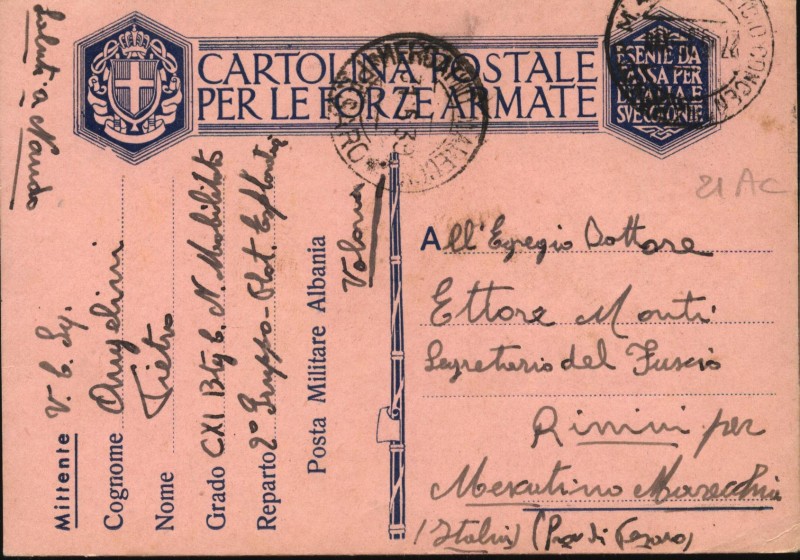 CARTOLINA POSTALE
PER LE FORZE ARMATE
ESENTE DA
TASSA PER
SVE
Saluti a Nando
Mittente V. C. Sq.
Cognome Angelini
Nome Pietro
Grado CXI Btg C. N. Mobilitato
Reparto 2º Gruppo - Plot.
Posta Militare Albania
Valona
21 AC
All'Egregio Dottore
Ettore Monti
Segretario del Fascio
Rimini per
Mercatino Marecchia
(Italia) (Prov di Pesaro)